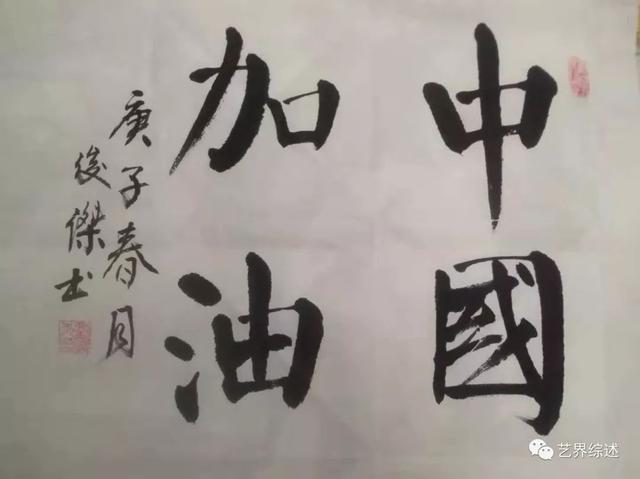 中國
加油
庚子春月
俊傑书
艺界综述